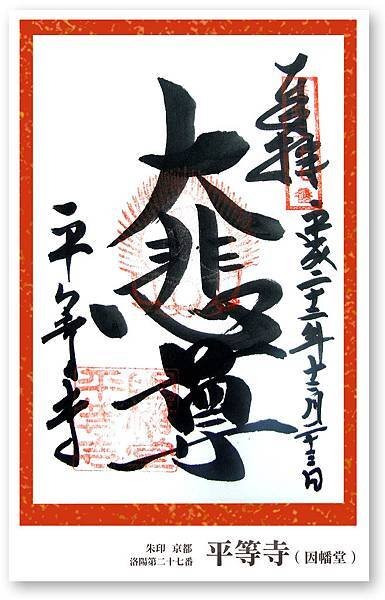 奉拝
平成二十二年十二月二十三日
大悲尊
平等寺
朱印 京都
洛陽第二十七番
平等寺（因幡堂）